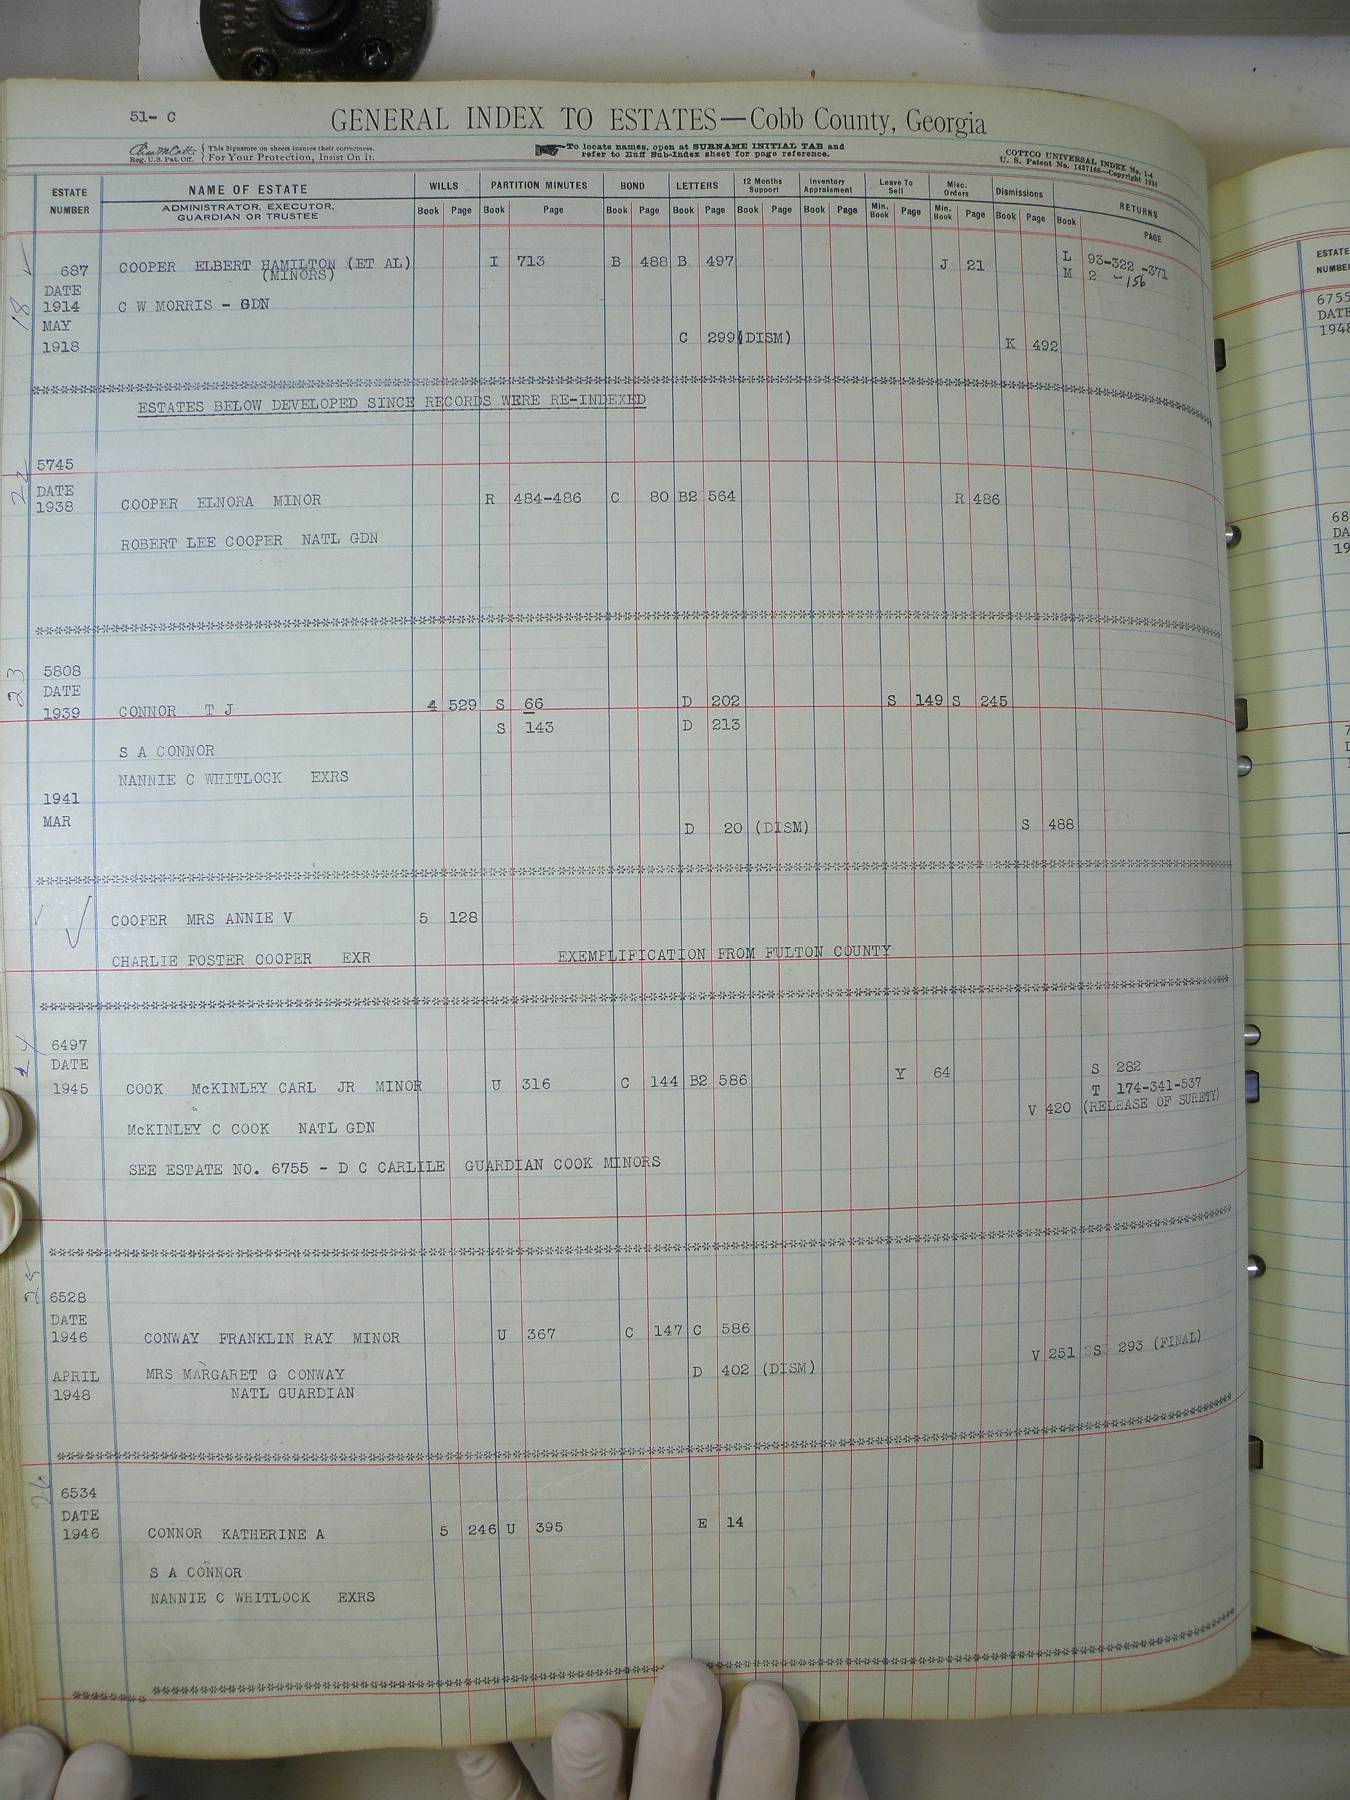 51- C
GENERAL INDEX TO ESTATES—Cobb County, Georgia
Reg. U.S. Pat. Off.
This Signature on sheets insures their correctness.
For Your Protection, Insist On It.
To locate names, open at SURNAME INITIAL TAB and
refer to Buff Sub-Index sheet for page reference.
COTTCO UNIVERSAL INDEX No. 1-4
U. S. Patent No. 1437166—Copyright 1930
ESTATE NUMBER NAME OF ESTATE WILLS PARTITION MINUTES BOND LETTERS 12 Months Support Inventory Appraisment Leave To Sell Misc. Orders Dismissions RETURNS
ADMINISTRATOR, EXECUTOR, GUARDIAN OR TRUSTEE Book Page Book Page Book Page Book Page Book Page Book Page Min. Book Page Min. Book Page Book Page Book PAGE
687 COOPER ELBERT HAMILTON (ET AL) I 713 B 488 B 497 J 21 L 93-322 -371
(MINORS) M 2 -156
DATE
18 1914 C W MORRIS - GDN
MAY
1918 C 299 (DISM) K 492
ESTATES BELOW DEVELOPED SINCE RECORDS WERE RE-INDEXED
22 5745
DATE
1938 COOPER ELNORA MINOR R 484-486 C 80 B2 564 R 486
ROBERT LEE COOPER NATL GDN
23 5808
DATE
1939 CONNOR T J 4 529 S 66 D 202 S 149 S 245
S 143 D 213
S A CONNOR
NANNIE C WHITLOCK EXRS
1941
MAR D 20 (DISM) S 488
COOPER MRS ANNIE V 5 128
CHARLIE FOSTER COOPER EXR EXEMPLIFICATION FROM FULTON COUNTY
24 6497
DATE S 282
1945 COOK McKINLEY CARL JR MINOR U 316 C 144 B2 586 Y 64 T 174-341-537
V 420 (RELEASE OF SURETY)
McKINLEY C COOK NATL GDN
SEE ESTATE NO. 6755 - D C CARLILE GUARDIAN COOK MINORS
25 6528
DATE
1946 CONWAY FRANKLIN RAY MINOR U 367 C 147 C 586
V 251 S 293 (FINAL)
APRIL MRS MARGARET G CONWAY D 402 (DISM)
1948 NATL GUARDIAN
26 6534
DATE
1946 CONNOR KATHERINE A 5 246 U 395 E 14
S A CONNOR
NANNIE C WHITLOCK EXRS
ESTATE
NUMBER
6755
DATE
1948